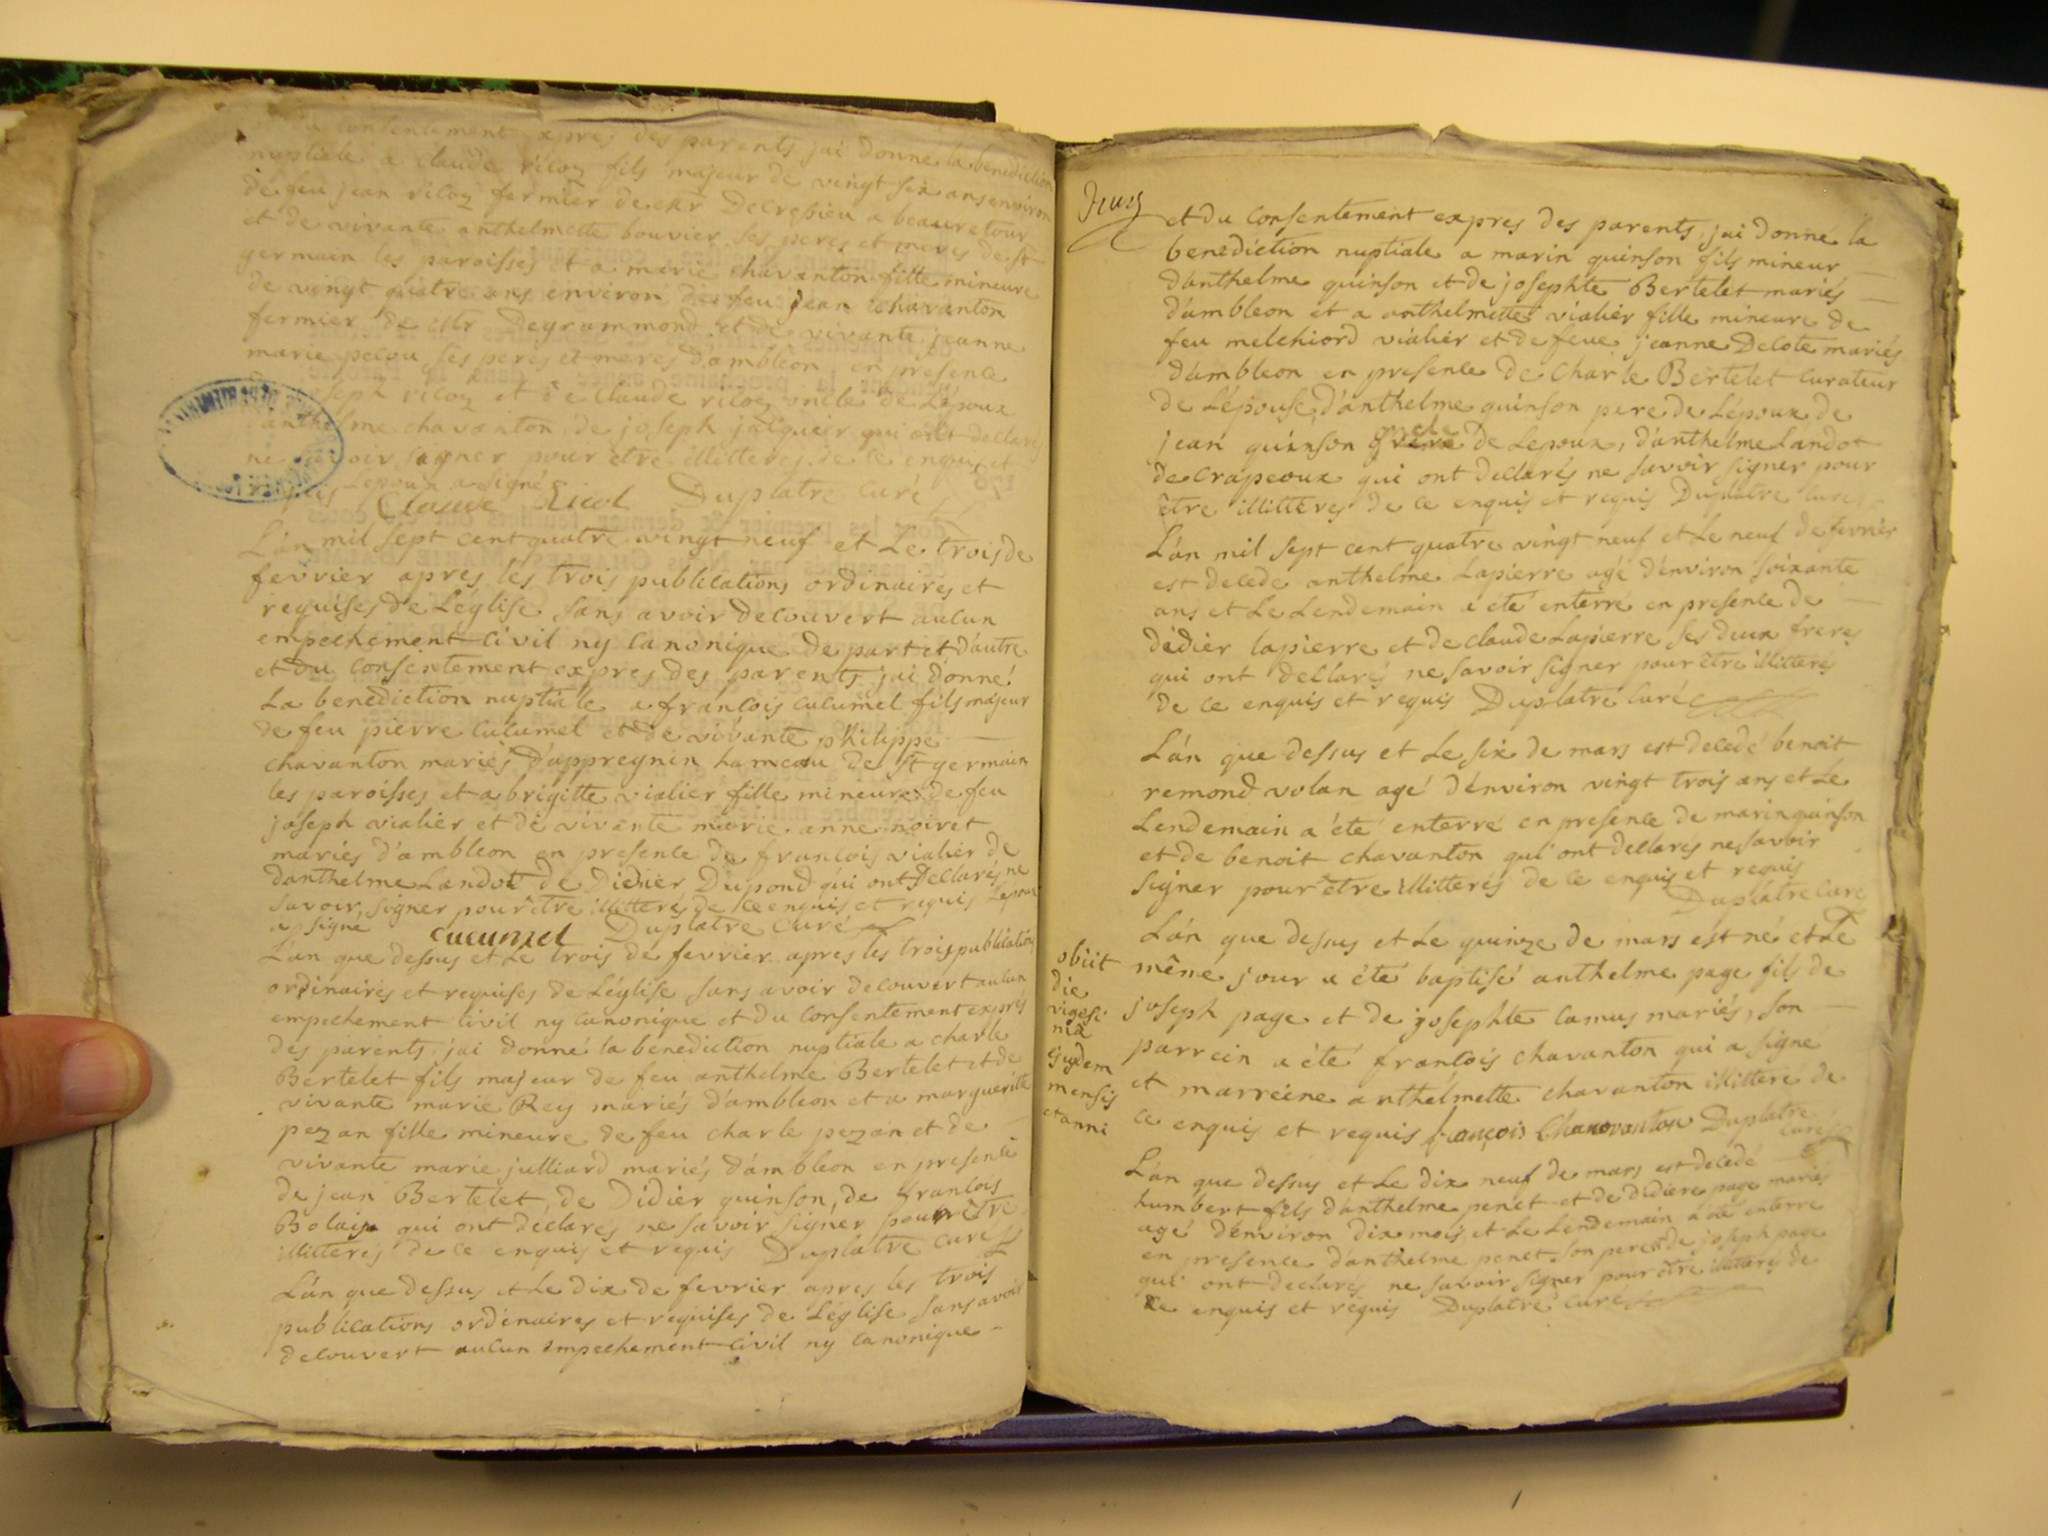 consentement expres des parents jai donné la benediction
nuptiale a claude ricoz fils majeur de vingt six ans environ
de feu jean ricoz fermier de mr Decressieu a beauretour
et de vivante anthelmette bouvier ses peres et meres de st
germain les paroisses et a marie chavanton fille mineure
de vingt quatre ans environ de feu jean chavanton
fermier de mr Degrammond et de vivante jeanne
marie pecou ses peres et meres d'ambleon en presence
de joseph ricoz et de claude ricoz oncle de L'époux
d'anthelme chavanton, de joseph jacquier qui ont declarés
ne savoir signer pour etre illitteres de ce enquis et
requis Lepoux a signé
Claude Ricol Duplatre Curé
L'an mil sept cent quatre vingt neuf et Le trois de
fevrier apres les trois publications ordinaires et
requises de L'église sans avoir decouvert aucun
empechement civil ny canonique de part et d'autre
et du consentement expres des parents jai donné
La benediction nuptiale a francois cucumel fils majeur
de feu pierre cucumel et de vivante philippe
chavanton mariés d'appregnin hameau de st germain
les paroisses et a brigitte vialier fille mineure de feu
joseph vialier et de vivante marie anne noiret
mariés d'ambleon en presence de francois vialier de
d'anthelme Landot de Didier Dupond qui ont declarés ne
savoir signer pour être illitterés de ce enquis et requis Lepoux
a signé cucumel Duplatre Curé
L'an que dessus et Le trois de fevrier apres les trois publications
ordinaires et requises de L'église sans avoir decouvert aucun
empechement civil ny canonique et du consentement expres
des parents jai donné la benediction nuptiale a charle
Bertelet fils majeur de feu anthelme Bertelet et de
vivante marie Rey mariés d'ambleon et a marguerite
pezan fille mineure de feu charle pezan et de
vivante marie julliard mariés d'ambleon en presence
de jean Bertelet, de Didier quinson, de francois
Bolain qui ont declarés ne savoir signer pour etre
illitterés de ce enquis et requis Duplatre Curé
L'an que dessus et Le dix de fevrier apres les trois
publications ordinaires et requises de L'église sans avoir
decouvert aucun empechement civil ny canonique
et du consentement expres des parents, jai donné la
benediction nuptiale a marin quinson fils mineur
d'anthelme quinson et de josephte Bertelet mariés
d'ambleon et a anthelmette vialier fille mineure de
feu melchiord vialier et de feue jeanne Delote mariés
d'ambleon en presence de Charle Bertelet curateur
de L'épouse, d'anthelme quinson pere de L'époux de
jean quinson oncle de Lepoux, d'anthelme Landot
de crapeoux qui ont declarés ne savoir signer pour
être illitteres de ce enquis et requis Duplatre Curé
L'an mil sept cent quatre vingt neuf et Le neuf de fevrier
est decede anthelme Lapierre agé d'environ soixante
ans et Le Lendemain a été enterré en presence de
didier lapierre et de claude Lapierre ses deux freres
qui ont declarés ne savoir signer pour être illitterés
de ce enquis et requis Duplatre Curé
L'an que dessus et Le six de mars est decedé benoit
remond volan agé d'environ vingt trois ans et Le
Lendemain a été enterré en presence de marin quinson
et de benoit chavanton qui ont declarés ne savoir
signer pour être illitterés de ce enquis et requis
Duplatre Curé
L'an que dessus et Le quinze de mars est né et Le
même jour a été baptisé anthelme page fils de
joseph page et de josephte camus mariés, son
parrein a été francois chavanton qui a signé
et marreine anthelmette chavanton illitteré de
ce enquis et requis françois Chanovanton Duplatre
Curé
obiit
die
vigesi
mâ
ejusdem
mensis
et anni
L'an que dessus et Le dix neuf de mars est decedé
humbert fils d'anthelme penet et de didiere page mariés
agé d'environ dix mois et Le Lendemain a été enterré
en presence d'anthelme penet son pere et de joseph page
qui ont declarés ne savoir signer pour être illitterés de
ce enquis et requis Duplatre Curé